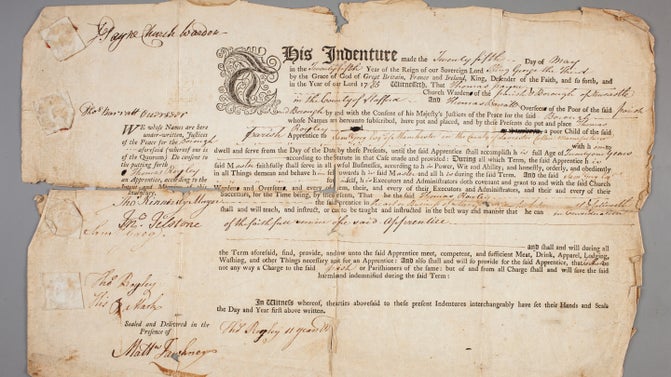 Payne Church Warden
Thos Barratt Overseer
WE whose Names are here
under-written, Justices
of the Peace for the Borough
aforesaid (whereof one is
of the Quorum) Do consent
to the putting forth
Thomas Begley
an Apprentice, according to the
Intent and Meaning of this
Indenture.
Thos Kinnersly Mayor
Thos Fletcher
Thos Begley
His X Mark
Sealed and Delivered in the
Presence of
THis Indenture made the Twenty fifth Day of May
in the Twenty fifth Year of the Reign of our Sovereign Lord King George the Third
by the Grace of God of Great Britain, France and Ireland, King, Defender of the Faith, and so forth, and
in the Year of our Lord 1785 Witnesseth, That Thomas Payne
Church Wardens of the Parish & Borough of Newcastle
in the County of Stafford And Thomas Barratt Overseers of the Poor of the said Parish
and Borough by and with the Consent of his Majesty's Justices of the Peace for the said Borough
whose Names are hereunto subscribed, have put and placed, and by these Presents do put and place Thomas
Begley a poor Child of the said
Parish Apprentice to
with him to
dwell and serve from the Day of the Date of these Presents, until the said Apprentice shall accomplish his full Age of Twenty one Years
according to the Statute in that Case made and provided: During all which Term, the said Apprentice his
said Master faithfully shall serve in all lawful Businesses, according to his Power, Wit and Ability, and honestly, orderly, and obediently
in all Things demean and behave himself towards his said Master and all his during the said Term. And the said
doth covenant and grant to and with the said Church
Wardens and Overseers, and every of them, their, and every of their Executors and Administrators, and their and every of their
Successors, for the Time being, by these Presents, That he the said
the said Apprentice in
shall and will teach, and instruct, or cause to be taught and instructed in the best way and manner that he can in Consideration
of the faithfull service of the said Apprentice
and shall and will during all
the Term aforesaid, find, provide, and allow unto the said Apprentice meet, competent, and sufficient Meat, Drink, Apparel, Lodging,
Washing, and other Things necessary and fit for an Apprentice: And also shall and will so provide for the said Apprentice, that he be
not any way a Charge to the said Parish or Parishioners of the same: but of and from all Charge shall and will save the said
harmless and indemnified during the said Term:
In Witness whereof, the Parties abovesaid to these present Indentures interchangeably have set their Hands and Seals
the Day and Year first above written.
Thos Begley 11 years old